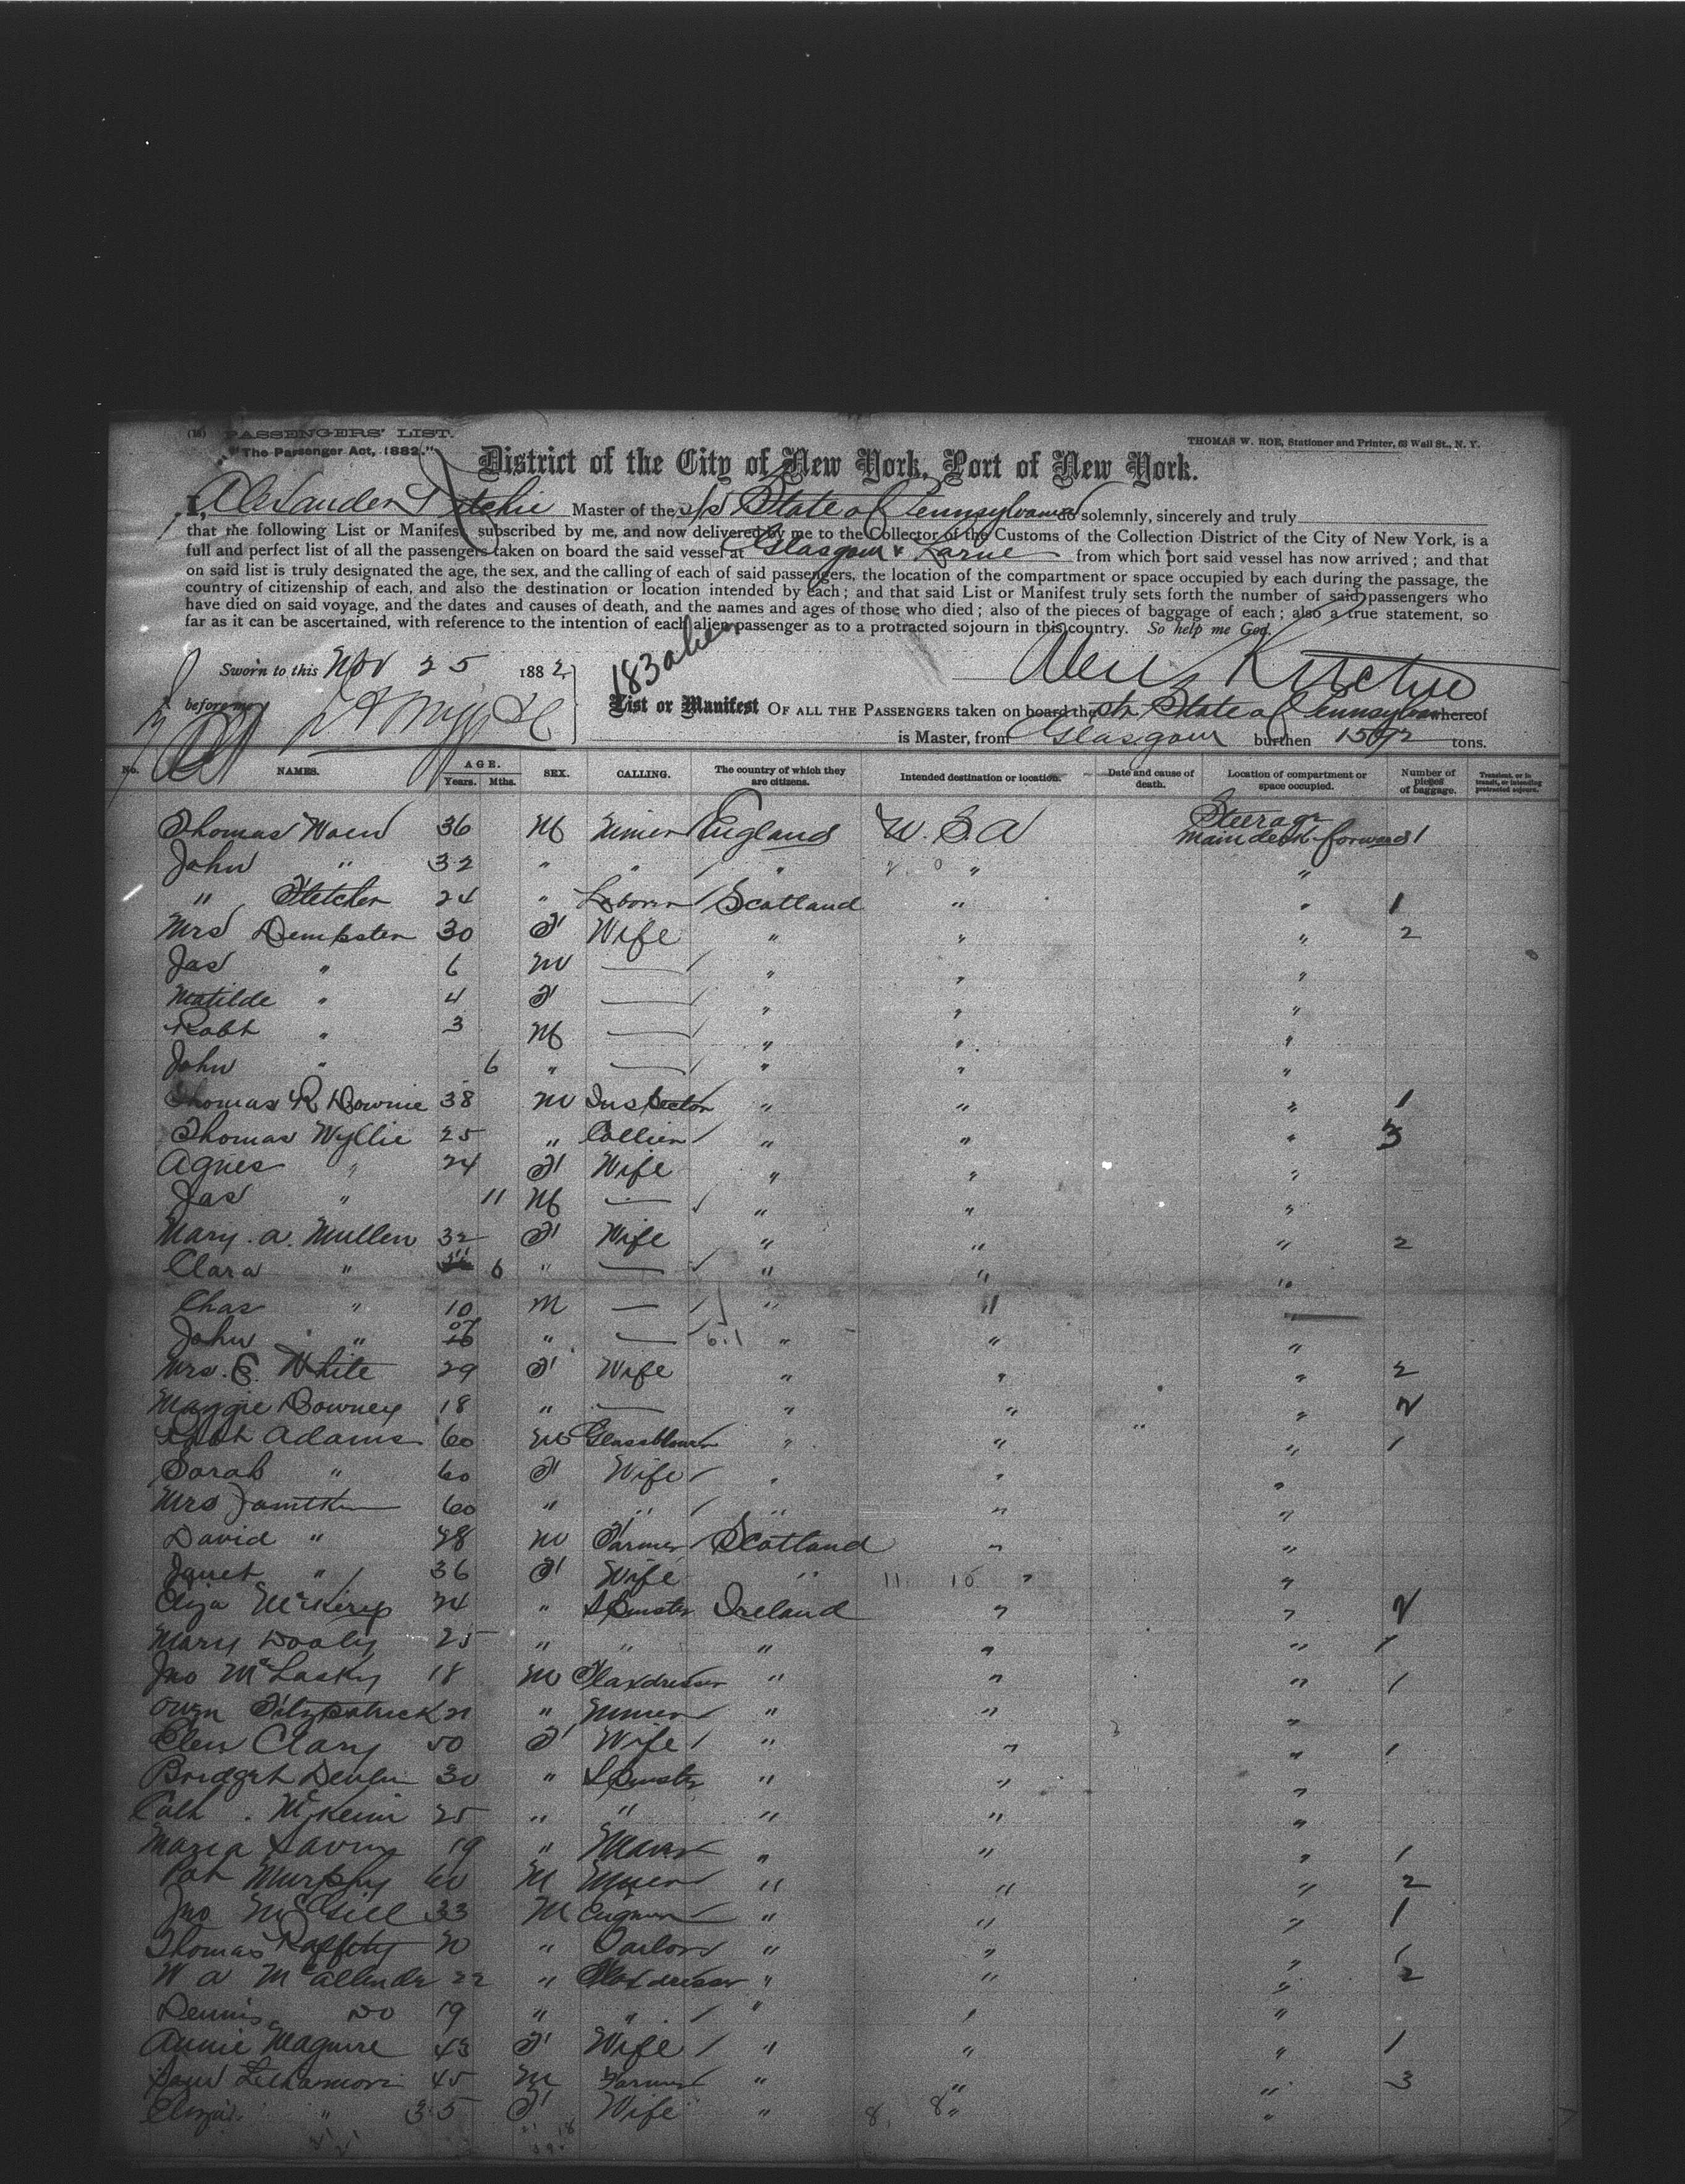 (18) PASSENGERS' LIST.
"The Passenger Act, 1882."
THOMAS W. ROE, Stationer and Printer, 63 Wall St., N. Y.
District of the City of New York, Port of New York.
I, Alexander Ritchie Master of the s/s State of Pennsylvania do solemnly, sincerely and truly
that the following List or Manifest subscribed by me, and now delivered by me to the Collector of the Customs of the Collection District of the City of New York, is a
full and perfect list of all the passengers taken on board the said vessel at Glasgow & Larne from which port said vessel has now arrived; and that
on said list is truly designated the age, the sex, and the calling of each of said passengers, the location of the compartment or space occupied by each during the passage, the
country of citizenship of each, and also the destination or location intended by each; and that said List or Manifest truly sets forth the number of said passengers who
have died on said voyage, and the dates and causes of death, and the names and ages of those who died; also of the pieces of baggage of each; also a true statement, so
far as it can be ascertained, with reference to the intention of each alien passenger as to a protracted sojourn in this country. So help me God.
183 alien
Sworn to this Nov 25 1882
Alex Ritchie
before me
List or Manifest OF ALL THE PASSENGERS taken on board the Str State of Pennsylvania whereof
is Master, from Glasgow burthen 1592 tons.
No. NAMES. AGE. Years. Mths. SEX. CALLING. The country of which they are citizens. Intended destination or location. Date and cause of death. Location of compartment or space occupied. Number of pieces of baggage. Transient, or in transit, or intending protracted sojourn.
Thomas 36 M Miner England U.S.A Steerage Main deck forward 1
John " 32 " " " " "
" Fletcher 24 " Laborer Scotland " " 1
Mrs Dempster 30 F Wife " " " 2
Jas " 6 M — " " "
Matilde " 4 F — " " "
Robt " 3 M — " " "
John " 6 " — " " "
Thomas R Downie 38 M Inspector " " " 1
Thomas Wyllie 25 " Collier " " " 3
Agnes " 24 F Wife " " "
Jas " 11 M — " " "
Mary. A. Mullen 32 F Wife " " " 2
Clara " 6 " — " " "
Chas " 10 M — " " "
John " " — " " "
Mrs. White 29 F Wife " " " 2
Maggie Downey 18 " — " " " 2
Robt Adams 60 M Glassblower " " " 1
Sarah " 60 F Wife " " "
Mrs 60 " " " " "
David " 28 M Farmer Scotland " "
Janet " 36 F Wife " " "
Eliza 24 " Spinster Ireland " " 2
Mary Dooly 25 " " " " " 1
Jno McLasky 18 M Flaxdresser " " " 1
Owen Fitzpatrick 21 " Miner " " "
Ellen Clary 50 F Wife " " " 1
Bridget Devlin 30 " Spinster " " "
Cath 25 " " " " "
Maria 19 " " " " 1
Pat Murphy 60 M Miner " " " 2
Jno McGill 33 M " " " 1
Thomas Raffity 20 " Tailor " " " 1
W A McAllinda 22 " Flaxdresser " " " 2
Dennis Do 19 " " " " "
Annie Maguire 43 F Wife " " " 1
45 M Farmer " " " 3
Eliza " 35 F Wife " " "